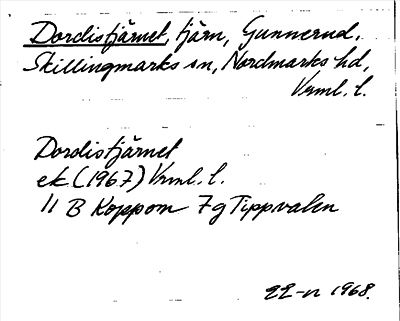 Dordistjärnet, tjärn, Gunnerud,
Skillingmarks sn, Nordmarks hd,
Vrml. l.
Dordistjärnet
ek. (1967) Vrml. l.
11 B Koppom 7g Tippvalen
1968.